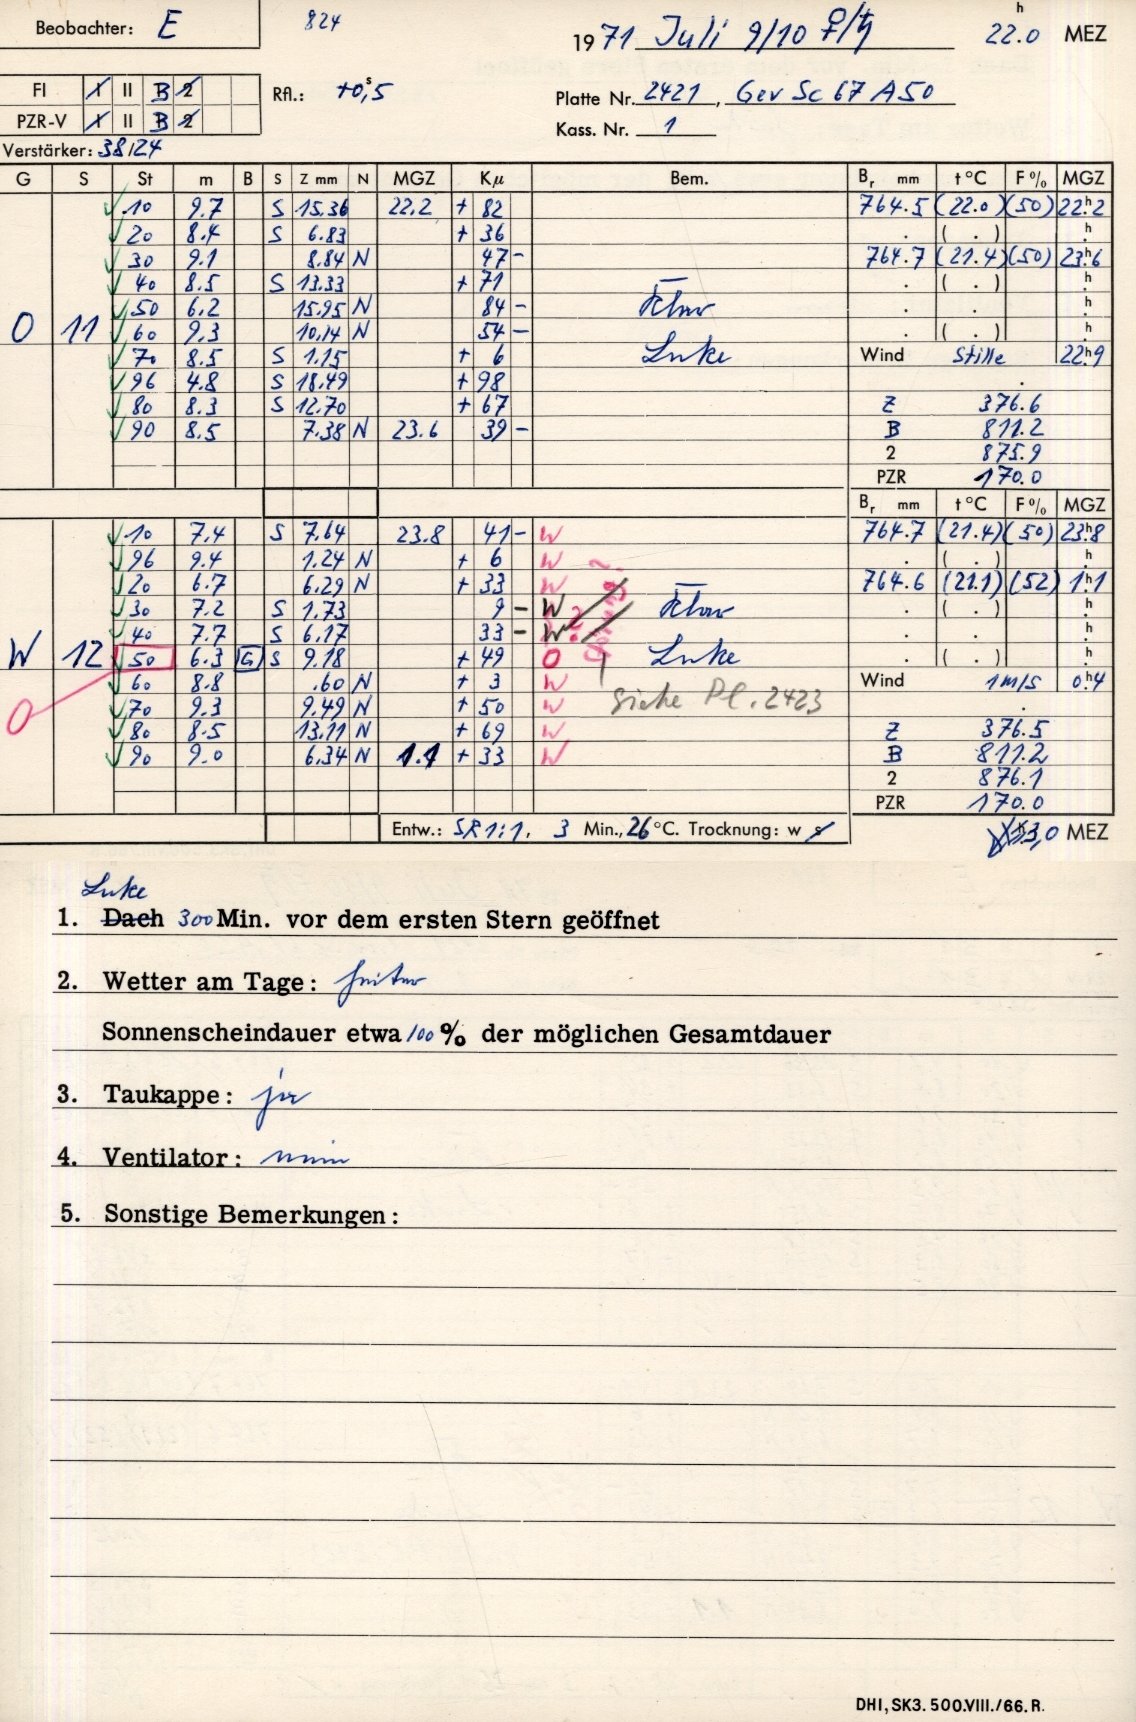 Beobachter: E 824 1971 Juli 9/10 ♀/♄ 22.0 h MEZ
FI I II B 2 Rfl.: +0,5 s Platte Nr. 2421, Gev Sc 67 A50
PZR-V I II B 2 Kass. Nr. 1
Verstärker: 38/24
G S St m B S Z mm N MGZ Kμ Bem. Br mm t°C F% MGZ
10 9.7 S 15.36 22.2 + 82 764.5 (22.0) (50) 22h2
20 8.4 S 6.83 + 36 ( . )
30 9.1 8.84 N 47 - 764.7 (21.4) (50) 23h6
40 8.5 S 13.33 + 71 ( . )
50 6.2 15.95 N 84 - Klar
O 11 60 9.3 10.14 N 54 - ( . )
70 8.5 S 1.15 + 6 Luke Wind Stille 22h9
96 4.8 S 18.49 + 98
80 8.3 S 12.70 + 67 Z 376.6
90 8.5 7.38 N 23.6 39 - B 811.2
2 875.9
PZR 170.0
Br mm t°C F% MGZ
10 7.4 S 7.64 23.8 41 - W 764.7 (21.4) (50) 23h8
96 9.4 1.24 N + 6 W ( . )
20 6.7 6.29 N + 33 W 764.6 (21.1) (52) 1h1
30 7.2 S 1.73 9 - W Klar ( . )
40 7.7 S 6.17 33 - W ?
W 12 50 6.3 G S 9.18 + 49 O Luke ( . )
60 8.8 .60 N + 3 W Wind 1 m/s 0h4
O 70 9.3 9.49 N + 50 W siehe Pl. 2423
80 8.5 13.11 N + 69 W Z 376.5
90 9.0 6.34 N 1.1 + 33 W B 811.2
2 876.1
PZR 170.0
Entw.: SR 1:1, 3 Min., 26 °C. Trocknung: w s 3,0 MEZ
Luke
1. Dach 300 Min. vor dem ersten Stern geöffnet
2. Wetter am Tage: heiter
Sonnenscheindauer etwa 100 % der möglichen Gesamtdauer
3. Taukappe: ja
4. Ventilator: nein
5. Sonstige Bemerkungen:
DHI, SK3. 500.VIII./66. R.